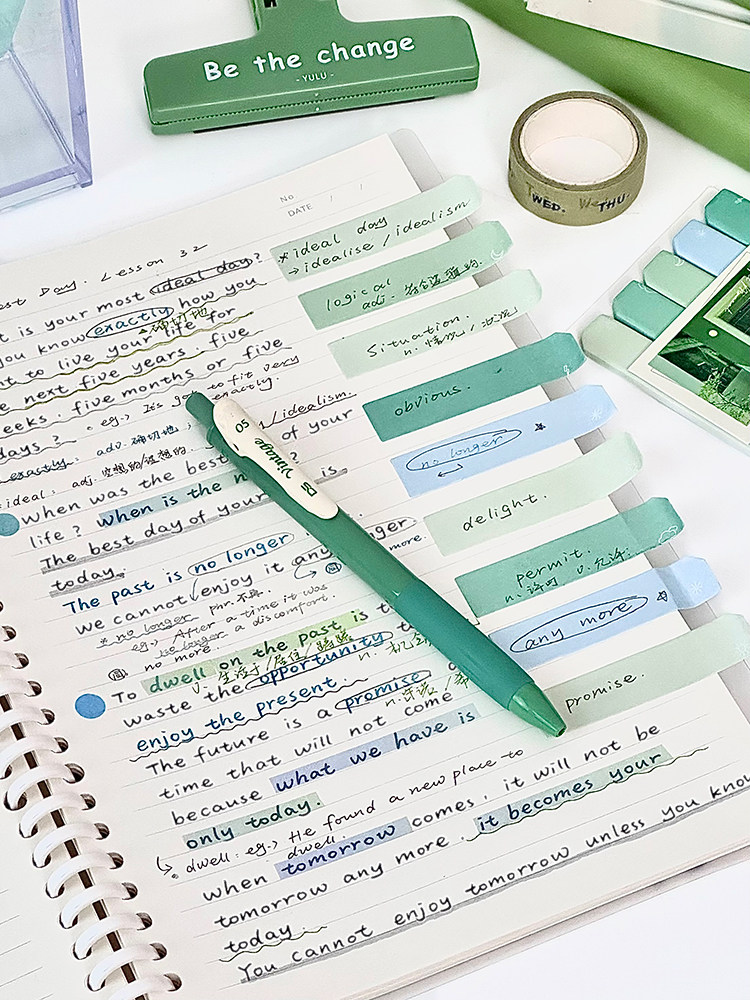 Be the change
- YULU -
WED. THU.
No
DATE / /
Day. Lesson 32
is your most ideal day?
you know exactly how you
确切地
to live your life for
next five years. five
five months or five
days? eg.> It's to fit very
exactly.
exactly: adv. 确切地;
/idealism.
ideal: adj. 空想的/理想的
of your
When was the best
life? When is the
The best day of your is
today.
The past is no longer
more.
we cannot enjoy it any longer
* no longer phr. 不再
eg.> After a time it was
no longer a discomfort.
no more.
To dwell on the past is
v. 生活于/居住/踌躇
waste the opportunity
n. 机会
enjoy the present.
The future is a promise
n. 许诺/希
time that will not come
because what we have is
only today.
dwell: eg.> He found a new place to
dwell.
when tomorrow comes, it will not be
tomorrow any more. it becomes your
today.
You cannot enjoy tomorrow unless you know
* ideal day
→ idealise / idealism
logical
adj. 符合逻辑的.
situation.
n. 情况/状况
obvious.
no longer
delight.
permit.
n. 许可 v. 允许.
any more
promise.
DS Vintage 05